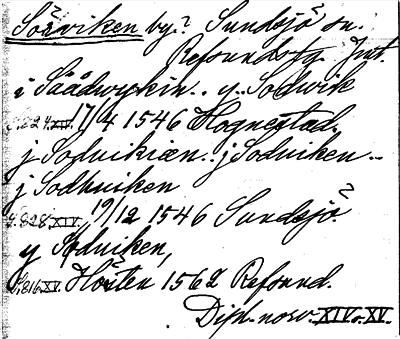 Sörviken by? Sundsjö sn.
Refsunds tg. Jmt.
i Säådwykin.. y Sodwik
s. 824. XIV. 17/4 1546 Hognestad.
j Sodvikiæn.. j Sodviken..
j Sodhuiken
s. 828. XIV. 19/12 1546 Sundsjö?
y Sodviken,
s. 816. XV. Hösten 1562 Refsund.
Dipl. norv. XIV o. XV.